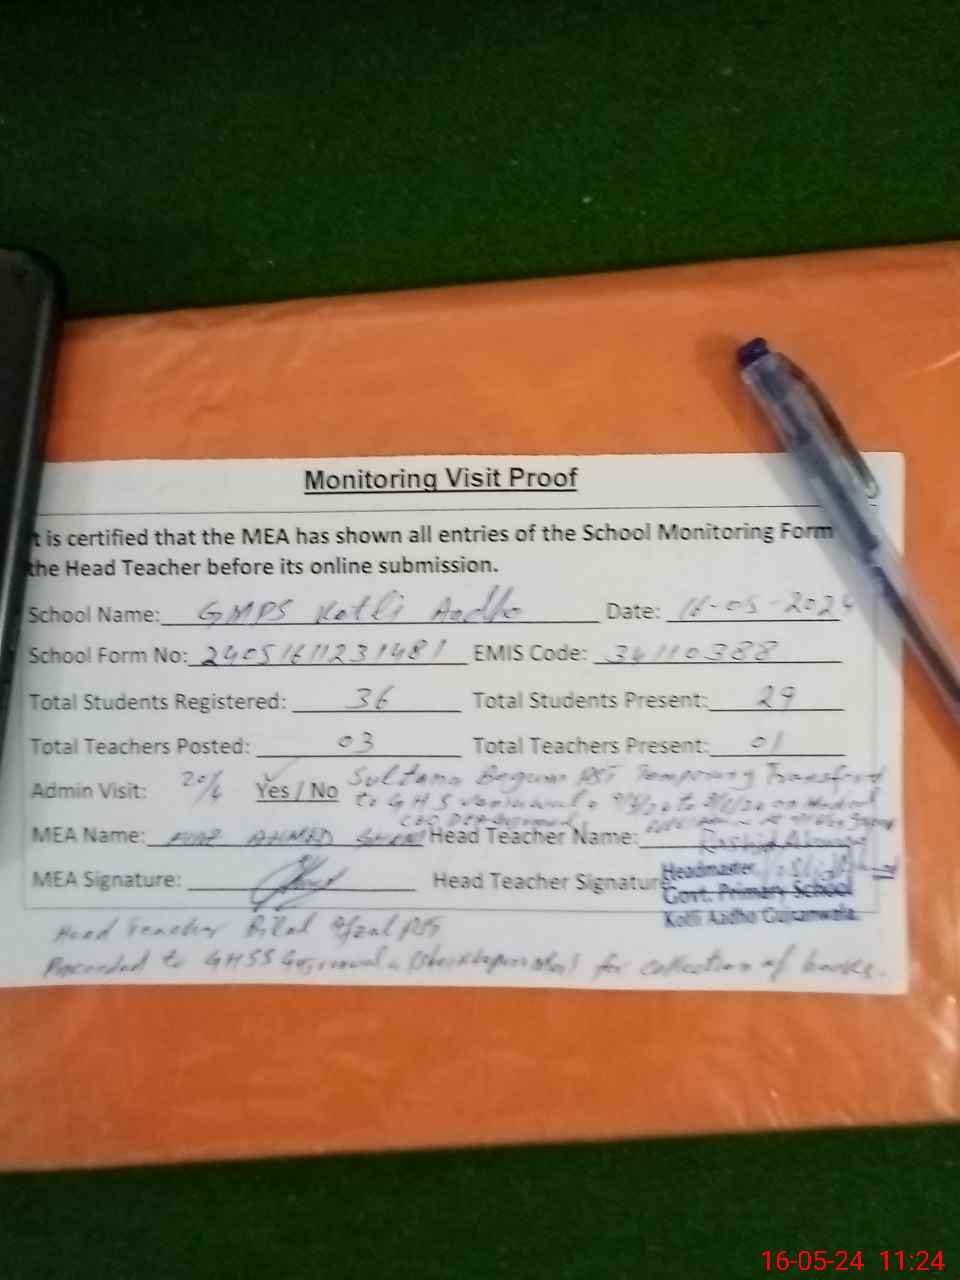 Monitoring Visit Proof
t is certified that the MEA has shown all entries of the School Monitoring Form
the Head Teacher before its online submission.
School Name: GMPS Kotli Aadho Date: 16-05-2024
School Form No: 24051611231481 EMIS Code: 34110388
Total Students Registered: 36 Total Students Present: 29
Total Teachers Posted: 03 Total Teachers Present: 01
Admin Visit: 20/4 Yes / No Sultana Begum PST Temporary Transfered
to G H S
CEO DEA
MEA Name: AHMED Head Teacher Name: Rashid
MEA Signature: Head Teacher Signature
Headmaster
Govt. Primary School
Kotli Aadho Gujranwala.
Head Teacher Bilal Afzal PST
Proceeded to GHSS for collection of books.
16-05-24 11:24